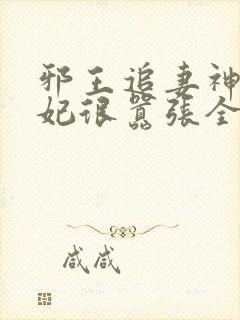 邪王追妻神
妃很嚣张全
咸咸